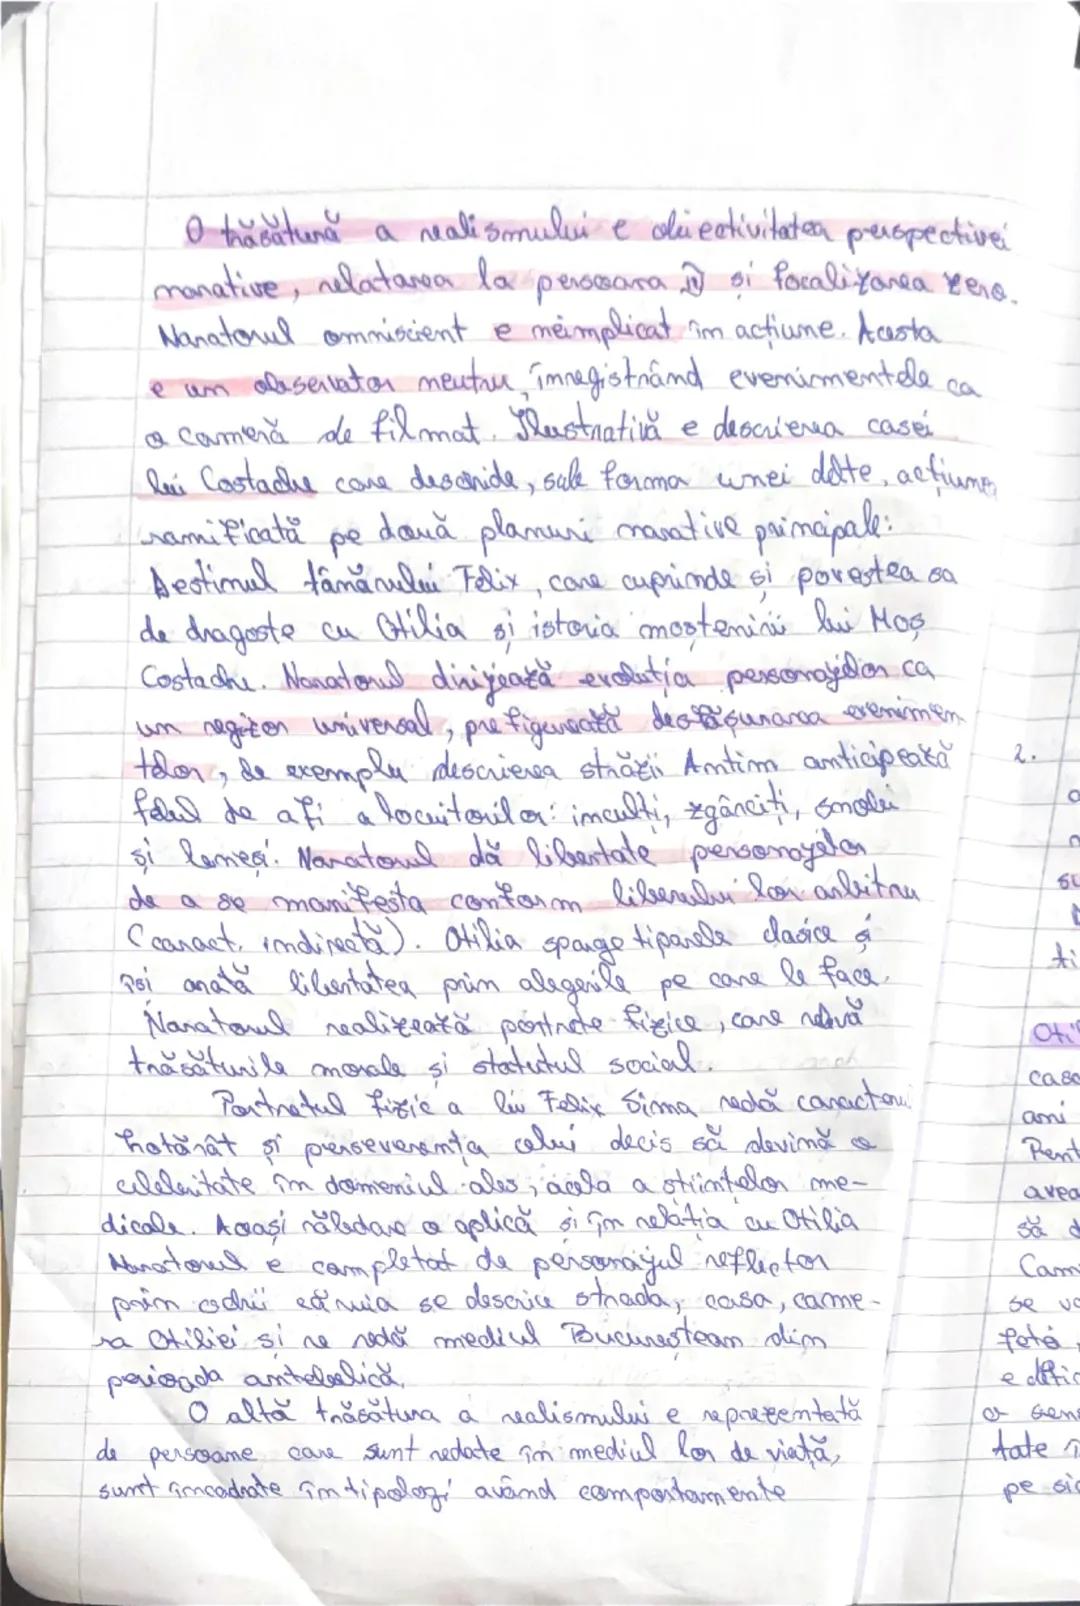 O trăsătură a realismului e obiectivitatea perspectivei
narative, relatarea la persoana III și focalizarea zero.
Naratorul omniscient e neimplicat în acțiune. Acesta
e un observator neutru, înregistrând evenimentele ca
o cameră de filmat. Ilustrativă e descrierea casei
lui Costache care deschide, sub forma unei date, acțiunea
ramificată pe două planuri narative principale:
Destinul tânărului Felix, care cuprinde și povestea sa
de dragoste cu Otilia și istoria moștenirii lui Moș
Costache. Naratorul dirijează evoluția personajelor ca
un regizor universal, prefigurează desfășurarea evenimen
telor, de exemplu descrierea străzii Antim anticipează
felul de a fi a locuitorilor: inculți, zgârciți, snobi
și leneși. Naratorul dă libertate personajelor
de a se manifesta conform liberului lor arbitru
(caract. indirectă). Otilia sparge tiparele clasice și
își arată libertatea prin alegerile pe care le face.
Naratorul realizează portrete fizice, care relevă
trăsăturile morale și statutul social.
Portretul fizic a lui Felix Sima redă caracterul
hotărât și perseverența celui decis să devină o
celebritate în domeniul ales, acela a științelor me-
dicale. Aceași răbdare o aplică și în relația cu Otilia
Naratorul e completat de personajul reflector
prin ochii căruia se descrie strada, casa, came-
ra Otiliei și ne redă mediul Bucureștean din
perioada antebelică.
O altă trăsătura a realismului e reprezentată
de persoane care sunt redate în mediul lor de viață,
sunt încadrate în tipologi având comportamente
2.
Oti
casa
ani
Pent
avea
să d
Cam
se
fată
a
tate
pe